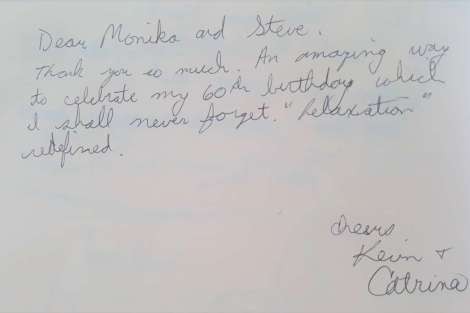 Dear Monika and Steve.
Thank you so much. An amazing way
to celebrate my 60th birthday which
I shall never forget. "Relaxation"
redefined.
Cheers
Kevin +
Catrina